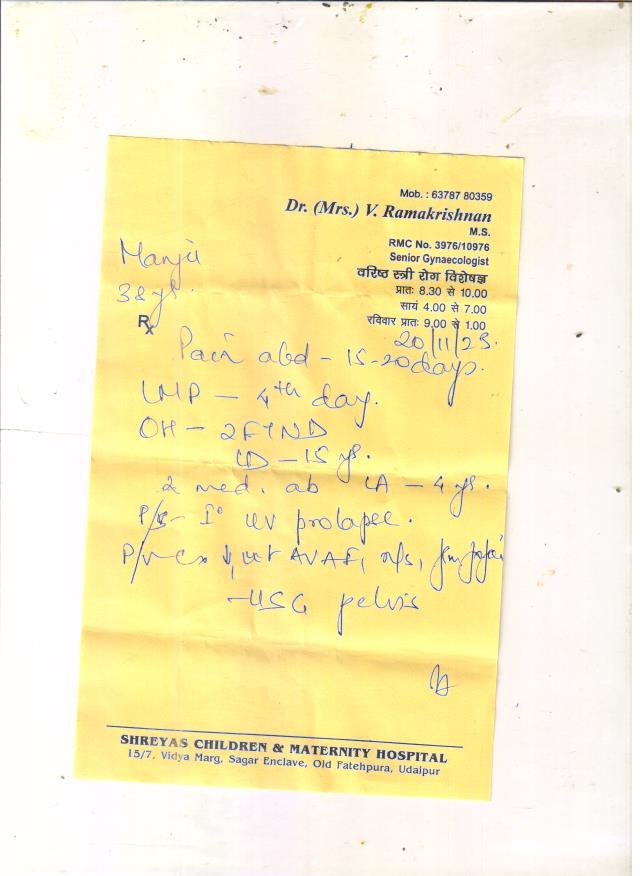 Mob. : 63787 80359
Dr. (Mrs.) V. Ramakrishnan
M.S.
RMC No. 3976/10976
Senior Gynaecologist
वरिष्ठ स्त्री रोग विशेषज्ञ
प्रातः 8.30 से 10.00
सायं 4.00 से 7.00
रविवार प्रातः 9.00 से 1.00
Manju
38 yr.
Rx
20/11/23.
Pain abd - 15-20 days.
LMP - 4th day.
OH - 2FTND
LD - 15 yr.
2 med. ab LA - 4 yr.
P/S - I° UV prolapse.
P/V - Cx ↓, ut AVAF, n/s,
- USG pelvis
SHREYAS CHILDREN & MATERNITY HOSPITAL
15/7, Vidya Marg, Sagar Enclave, Old Fatehpura, Udaipur